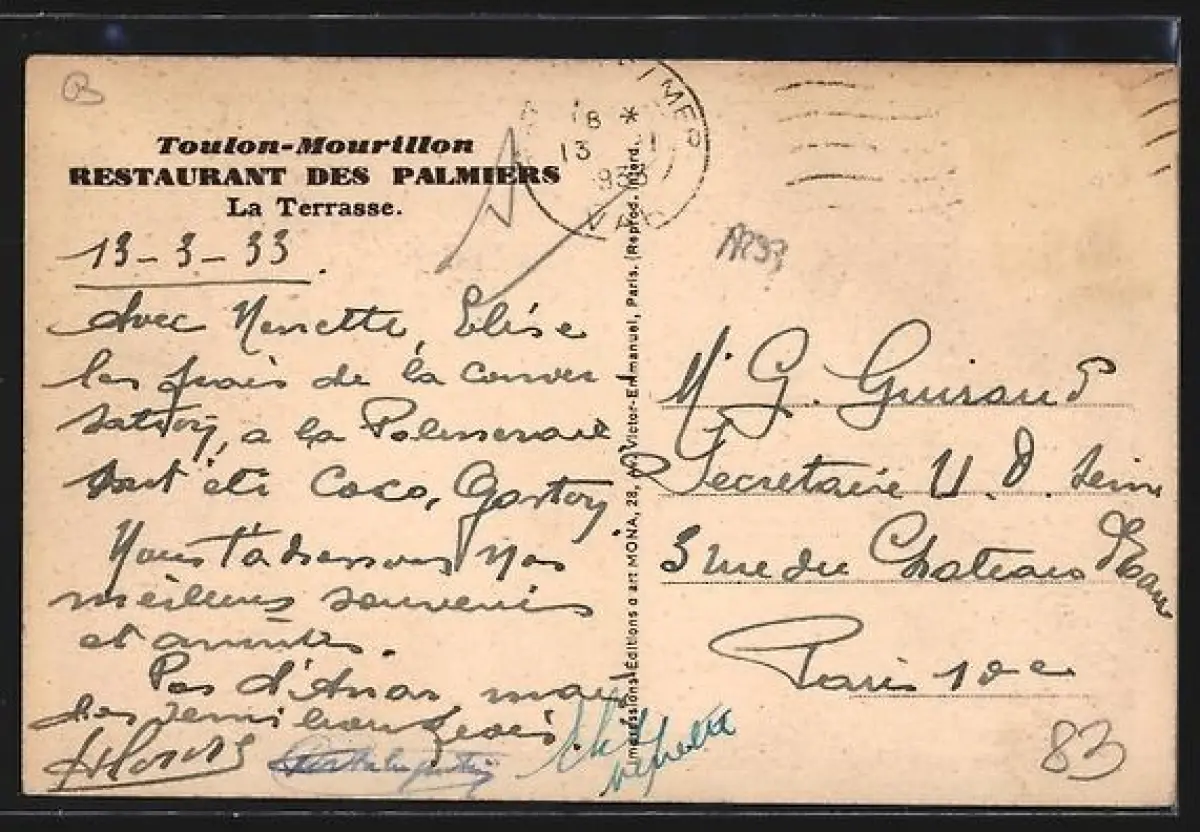 Toulon-Mourillon
RESTAURANT DES PALMIERS
La Terrasse.
13-3-33.
Avec Nenette, Elise
les frais de la conver
sation, a la
ont été Coco, Gaston
Nous t'adressons nos
meilleurs souvenirs
et amitiés.
Pas d'Anar mais
des
MER
18 *
13
1933
VAR
Impressions-Éditions d'art MONA, 28, r. Victor-Emmanuel, Paris. (Reprod. interd.
AR93
Mr G. Guiraud
Secrétaire U. D. Seine
3 rue du Chateau d'Eau
Paris 10e
83